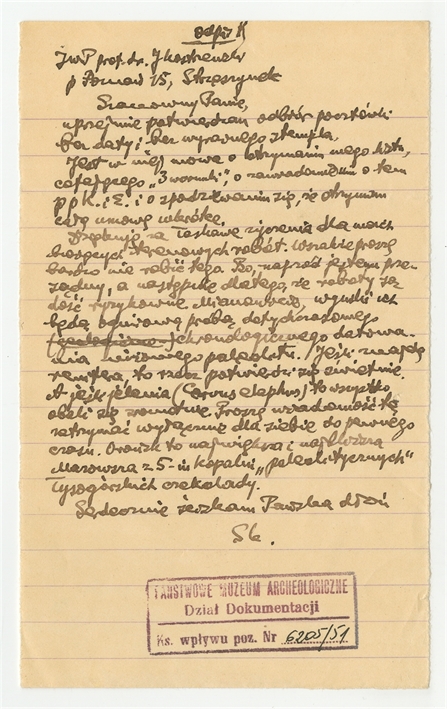 odpis
JWP prof. dr. J Kostrzewski
p Poznań 15, Strzeszynek
Szanowny Panie,
uprzejmie potwierdzam odbiór pocztówki
bez daty i bez wyraźnego stempla.
Jest w niej mowa o otrzymaniu mego listu,
cofającego „3 warunki", o zawiadomieniu o tem
pp K. i Ż. i o spodziewaniu się, że otrzymam
całą umowę wkrótce.
Dziękuję za łaskawe życzenia dla moich
bieżących terenowych robót. Wszakże proszę
bardzo nie robić tego. Bo, naprzód jestem prze-
sądny, a następnie dlatego, że roboty są
dość ryzykowne. Mianowicie, wyniki ich
będą ogniową próbą dotychczasowego
chronologicznego datowa-
nia paleolitu. Jeśli znajdę
renifera, to rzecz potwierdzi się świetnie.
A jeśli jelenia (Cervus elaphus) to wszystko
obali się Proszę wiadomość tę
zatrzymać wyłącznie dla siebie do pewnego
czasu. Orońsk to największa i najbliższa
Warszawa z 5-iu kopalni „paleolitycznych"
łysogórskich czekolady.
Serdecznie ściskam Pańską dłoń
PAŃSTWOWE MUZEUM ARCHEOLOGICZNE
Dział Dokumentacji
Ks. wpływu poz. Nr 6205/51